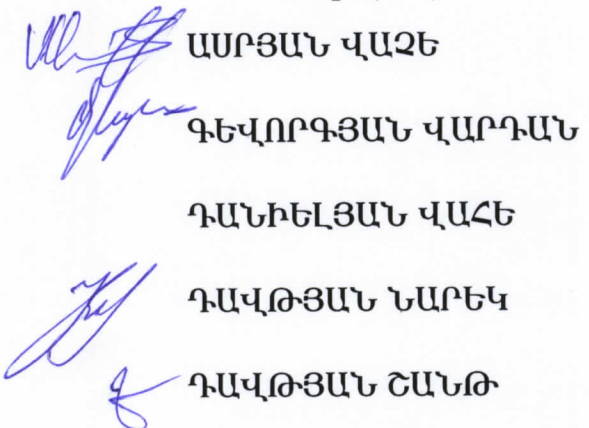 ԱՍՐՅԱՆ ՎԱՉԵ
ԳԵՎՈՐԳՅԱՆ ՎԱՐԴԱՆ
ԴԱՆԻԵԼՅԱՆ ՎԱՀԵ
ԴԱՎԹՅԱՆ ՆԱՐԵԿ
ԴԱՎԹՅԱՆ ՇԱՆԹ